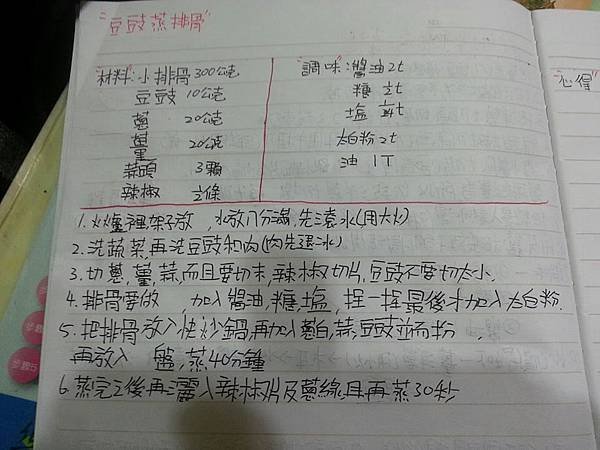 "豆豉蒸排骨"
"材料":小排骨 300公克
豆豉 10公克
蔥 20公克
薑 20公克
蒜頭 3顆
辣椒 ½條
"調味":醬油2t
糖 ½t
塩 ¼t
太白粉2t
油 1T
"心得"
1. 火爐裡架子放 ,水放八分滿,先滾水(用大火)
2. 洗蔬菜,再洗豆豉和肉(肉先溫水)
3. 切蔥,薑,蒜,而且要切末,辣椒切片,豆豉不要切太小.
4. 排骨要做 ,加入醬油,糖,塩,捏一捏最後才加入太白粉.
5. 把排骨放入快炒鍋,再加入蔥白,蒜,豆豉並而抄 ,
再放入 盤,蒸40分鐘
6. 蒸完之後再灑入辣椒片及蔥綠且再蒸30秒
步驟5